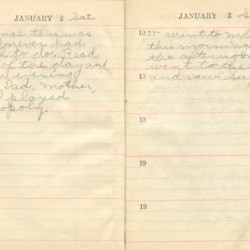 JANUARY 2 Sat.
ince this was
however had
to do. Read
of the day and
evening
Dad, Mother,
I played
opoly.
JANUARY 3
19 went to
this morning
the afternoon
went to the
and saw
19
19
19